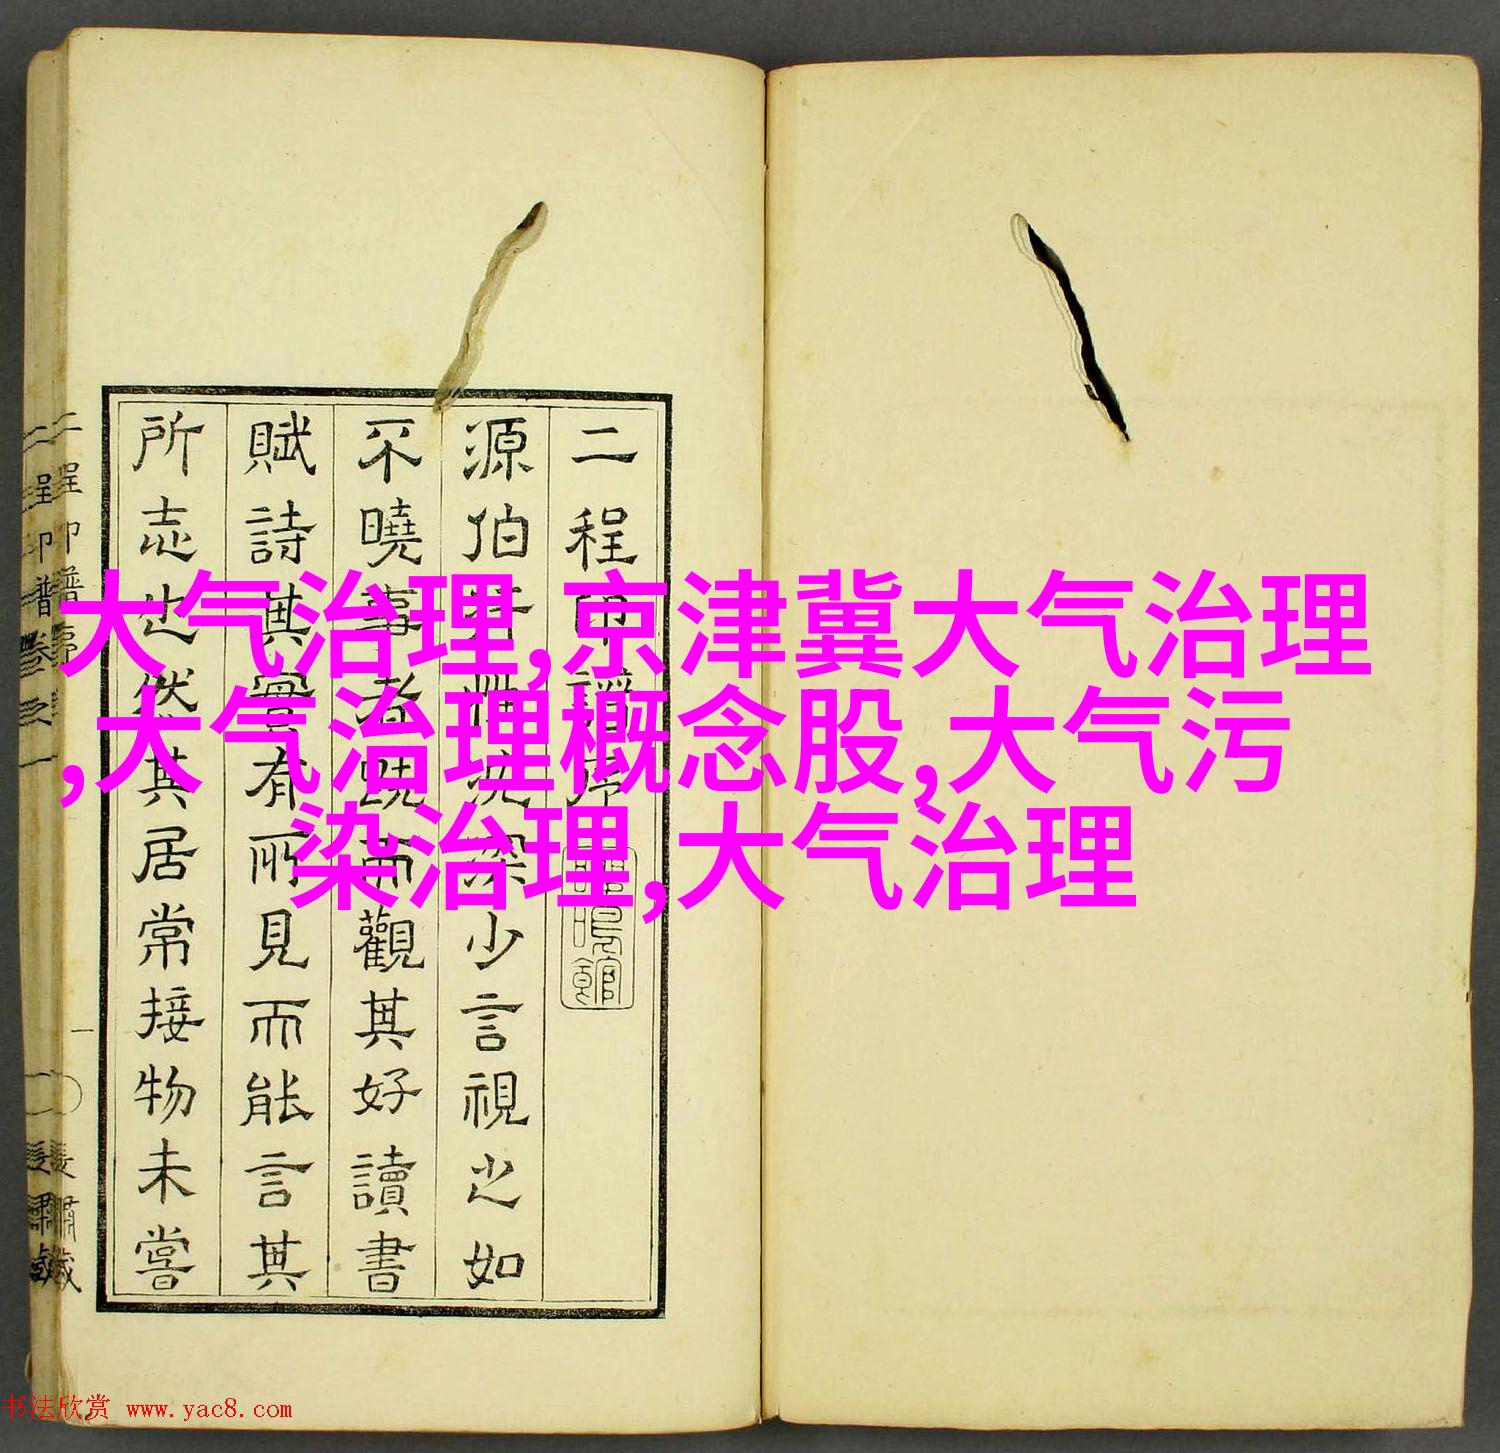 大气治理,京津冀大气治理
,大气治理概念股,大气污
染治理,大气治理
二程印譜序
源伯牙性沈深少言視之如
不曉事者既而觀其好讀書
賦詩其實有所見而能言其
所志也然其居常接物未嘗
书法欣赏 www.yac8.com